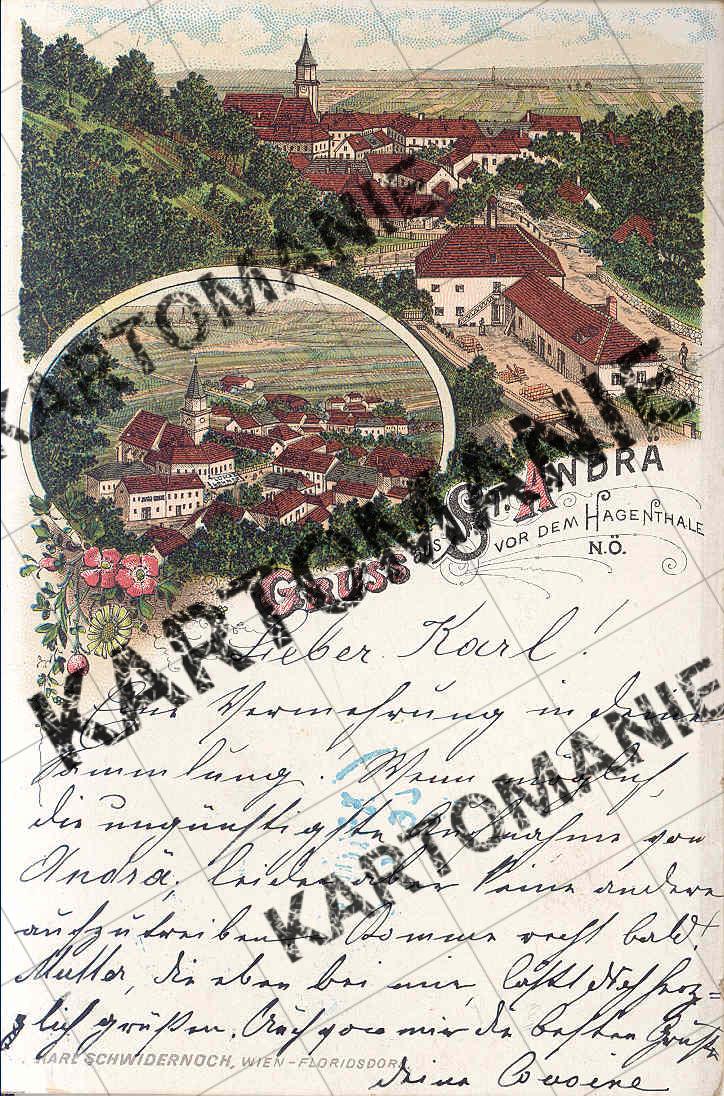 Gruss aus St. Andrä
vor dem Hagenthale
N.Ö.
Lieber Karl!
Eine Vermehrung in deine
Sammlung. Wenn möglich,
die ungünstigste Aufnahme von
Andrä, leider aber keine andere
aufzutreiben. Komme recht bald!
Mutter, die eben bei mir, läßt Dich herz=
lich grüßen. Auch von mir die besten Grüße
deine Cousine
Karl Schwidernoch, Wien-Floridsdorf
KARTOMANIE
KARTOMANIE
KARTOMANIE
KARTOMANIE